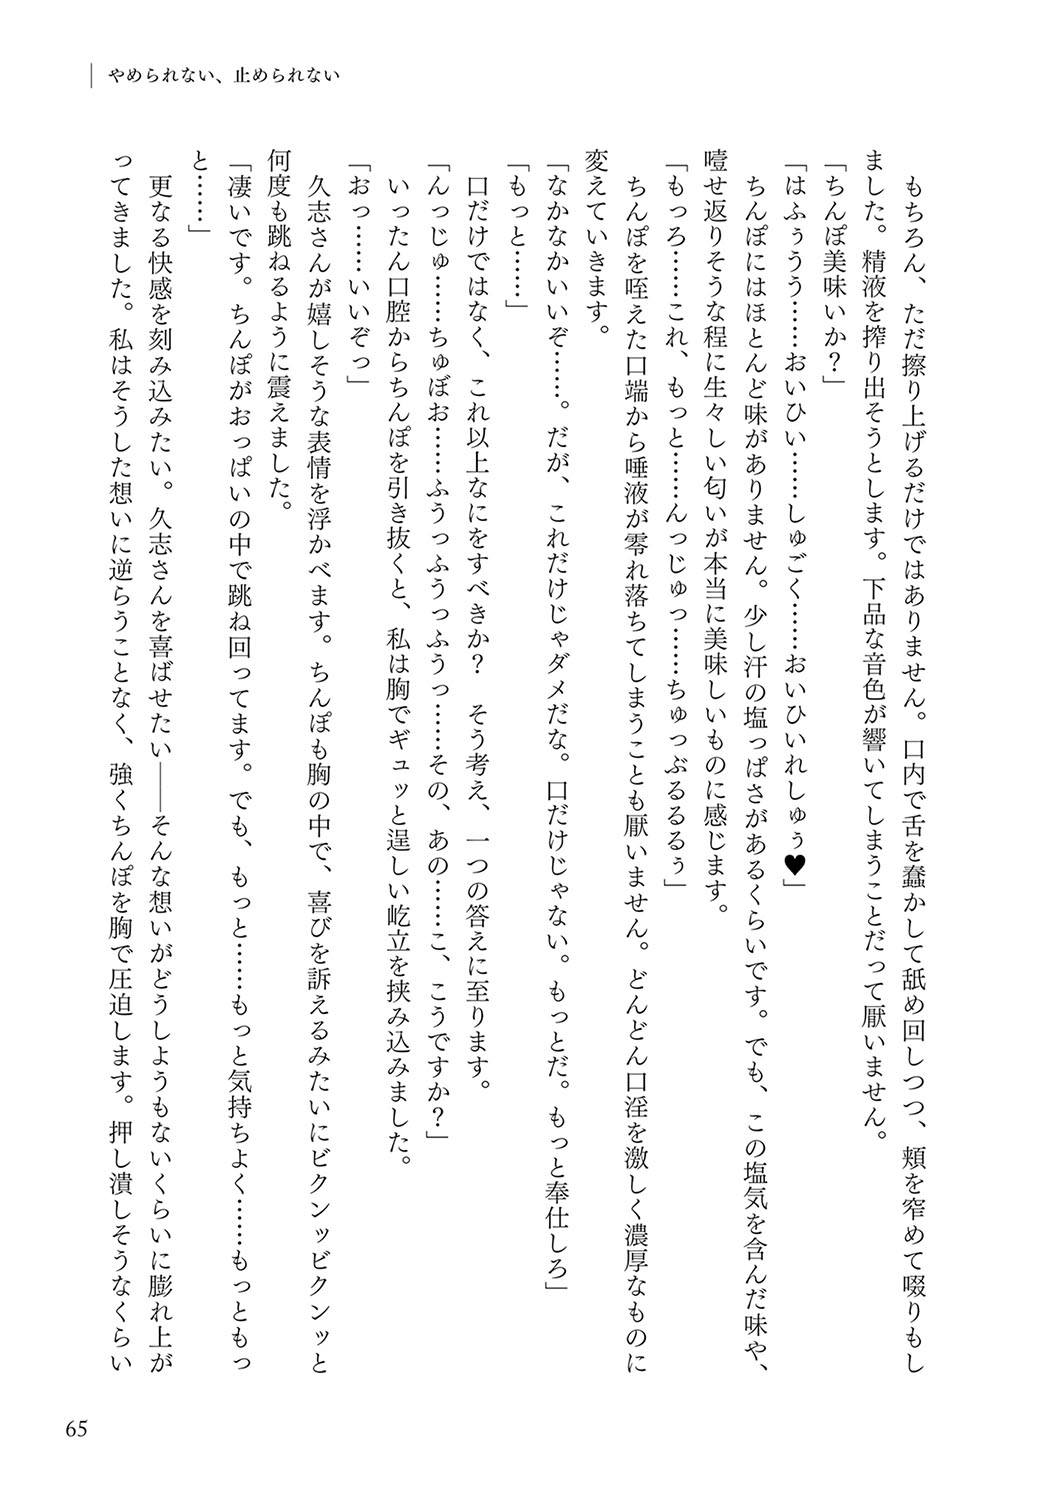 やめられない、止められない
もちろん、ただ擦り上げるだけではありません。口内で舌を蠢かして舐め回しつつ、頬を窄めて啜りもし
ました。精液を搾り出そうとします。下品な音色が響いてしまうことだって厭いません。
「ちんぽ美味いか？」
「はふぅうう……おいひい……しゅごく……おいひいれしゅぅ♥」
ちんぽにはほとんど味がありません。少し汗の塩っぱさがあるくらいです。でも、この塩気を含んだ味や、
噎せ返りそうな程に生々しい匂いが本当に美味しいものに感じます。
「もっろ……これ、もっと……んっじゅっ……ちゅっぶるるるぅ」
ちんぽを咥えた口端から唾液が零れ落ちてしまうことも厭いません。どんどん口淫を激しく濃厚なものに
変えていきます。
「なかなかいいぞ……。だが、これだけじゃダメだな。口だけじゃない。もっとだ。もっと奉仕しろ」
「もっと……」
口だけではなく、これ以上なにをすべきか？　そう考え、一つの答えに至ります。
「んっじゅ……ちゅぼお……ふうっふうっふうっ……その、あの……こ、こうですか？」
いったん口腔からちんぽを引き抜くと、私は胸でギュッと逞しい屹立を挟み込みました。
「おっ……いいぞっ」
久志さんが嬉しそうな表情を浮かべます。ちんぽも胸の中で、喜びを訴えるみたいにビクンッビクンッと
何度も跳ねるように震えました。
「凄いです。ちんぽがおっぱいの中で跳ね回ってます。でも、もっと……もっと気持ちよく……もっともっ
と……」
更なる快感を刻み込みたい。久志さんを喜ばせたい――そんな想いがどうしようもないくらいに膨れ上が
ってきました。私はそうした想いに逆らうことなく、強くちんぽを胸で圧迫します。押し潰しそうなくらい
65